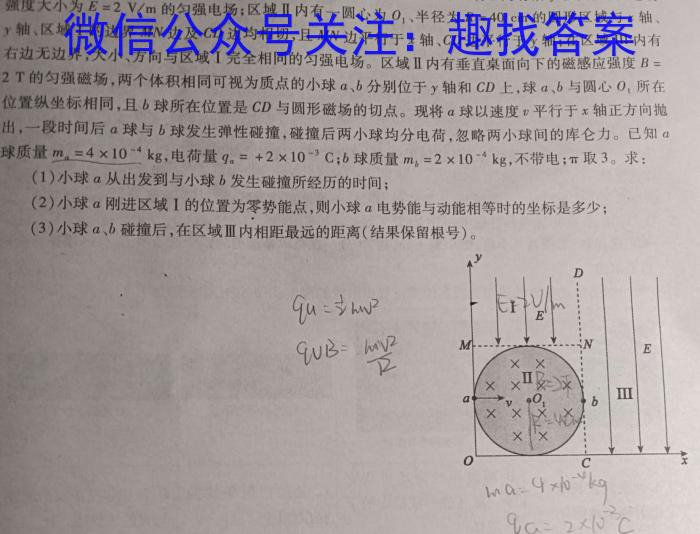 强度大小为 E=2 V/m 的匀强电场;区域Ⅱ内有一圆心为 O₁、半径为
微信公众号关注:趣找答案
右边无边界,大小、方向与区域Ⅰ完全相同的匀强电场。区域Ⅱ内有垂直桌面向下的磁感应强度 B=
2 T 的匀强磁场,两个体积相同可视为质点的小球 a、b 分别位于 y 轴和 CD 上,球 a、b 与圆心 O₁ 所在
位置纵坐标相同,且 b 球所在位置是 CD 与圆形磁场的切点。现将 a 球以速度 v 平行于 x 轴正方向抛
出,一段时间后 a 球与 b 球发生弹性碰撞,碰撞后两小球均分电荷,忽略两小球间的库仑力。已知 a
球质量 mₐ=4×10⁻⁴ kg,电荷量 qₐ=+2×10⁻³ C;b 球质量 m_b=2×10⁻⁴ kg,不带电;π 取 3。求:
(1)小球 a 从出发到与小球 b 发生碰撞所经历的时间;
(2)小球 a 刚进区域Ⅰ的位置为零势能点,则小球 a 电势能与动能相等时的坐标是多少;
(3)小球 a、b 碰撞后,在区域Ⅲ内相距最远的距离(结果保留根号)。
y
D
E=2V/m
Ⅰ
E
qu=½mv²
qvB=mv²/R
M
N
E
Ⅱ
B=2T
a
v
O₁
b
Ⅲ
O
C
x
ma=4×10⁻⁴kg
qa=2×10⁻²C